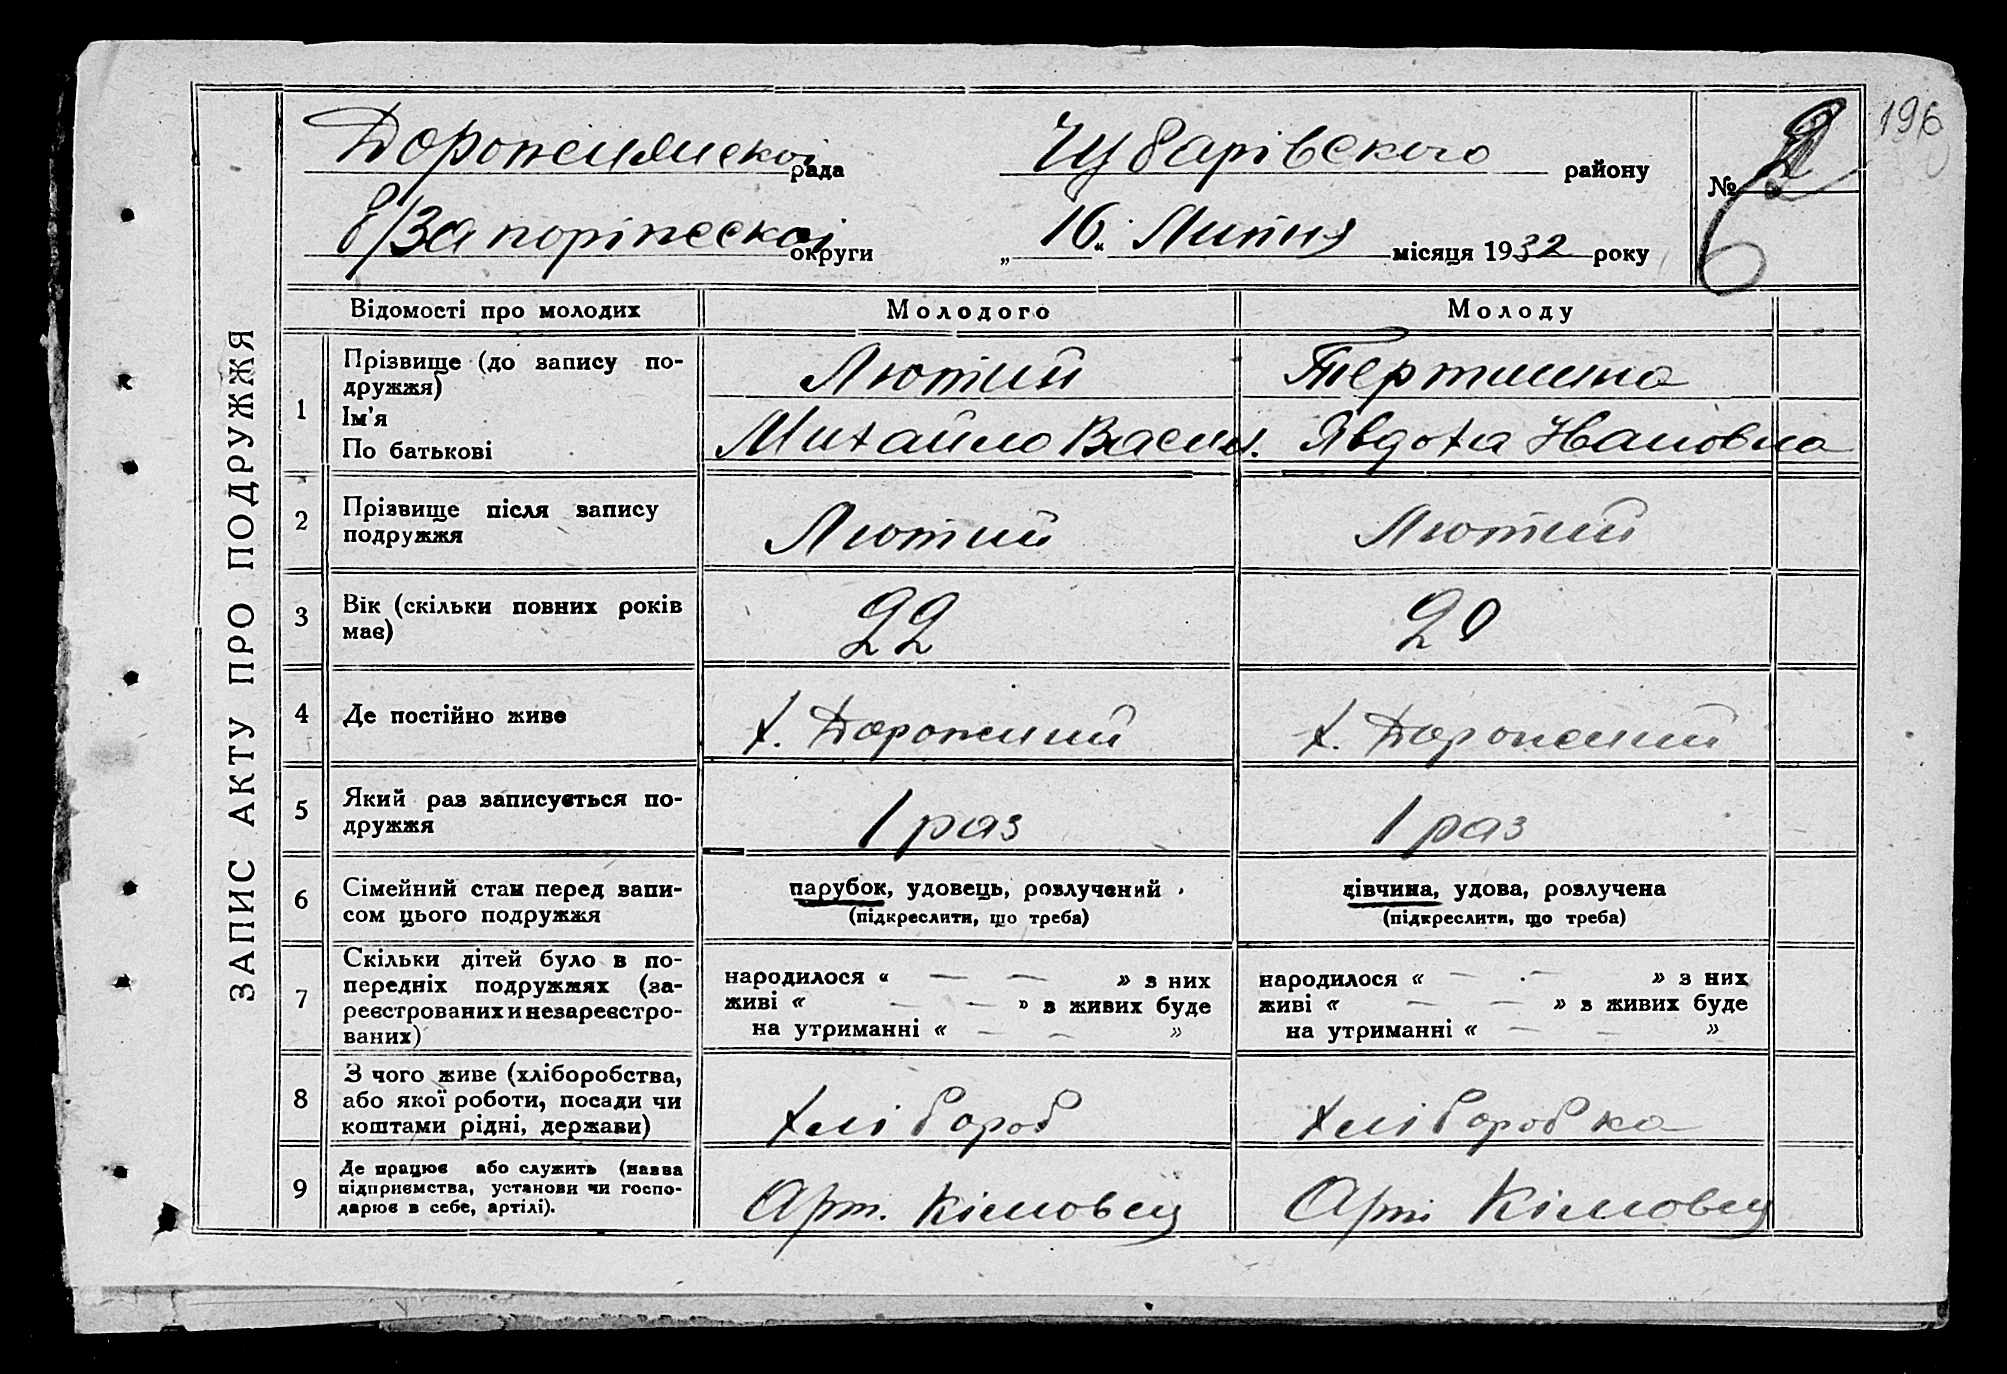 196
ЗАПИС АКТУ ПРО ПОДРУЖЖЯ
рада Чубарівського району № 6
б/Запоріжської округи „16“ Липня місяця 1932 року
Відомості про молодих Молодого Молоду
1 Прізвище (до запису по-
дружжя) Лютий Тертишна
Ім'я
По батькові Михайло Васил. Явдоха Івановна
2 Прізвище після запису
подружжя Лютий Лютий
3 Вік (скільки повних років
має) 22 20
4 Де постійно живе х. х.
5 Який раз записується по-
дружжя 1 раз 1 раз
6 Сімейний стан перед запи-
сом цього подружжя
парубок, удовець, розлучений
(підкреслити, що треба)
дівчина, удова, розлучена
(підкреслити, що треба)
7 Скільки дітей було в по-
передніх подружжях (за-
реєстрованих и незареєстро-
ваних)
народилося « — — » з них
живі « — — » з живих буде
на утриманні « — — »
народилося « — — » з них
живі « — — » з живих буде
на утриманні « — — »
8 З чого живе (хліборобства,
або якої роботи, посади чи
коштами рідні, держави) хлібороб хліборобка
9 Де працює або служить (назва
підприємства, установи чи госпо-
дарює в себе, артілі). Арт. Кімовец Арт. Кімовец